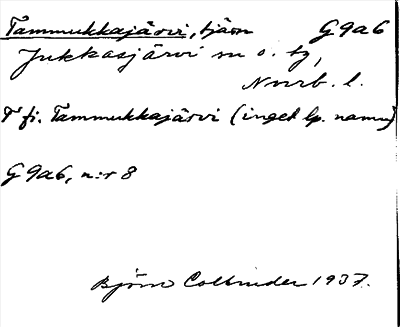 Tammukkajärvi, tjärn G9a6
Jukkasjärvi sn o. tg,
Norrb. l.
T fi. Tammukkajärvi (inget lp. namn)
G9a6, n:r 8
Björn Collinder 1937.